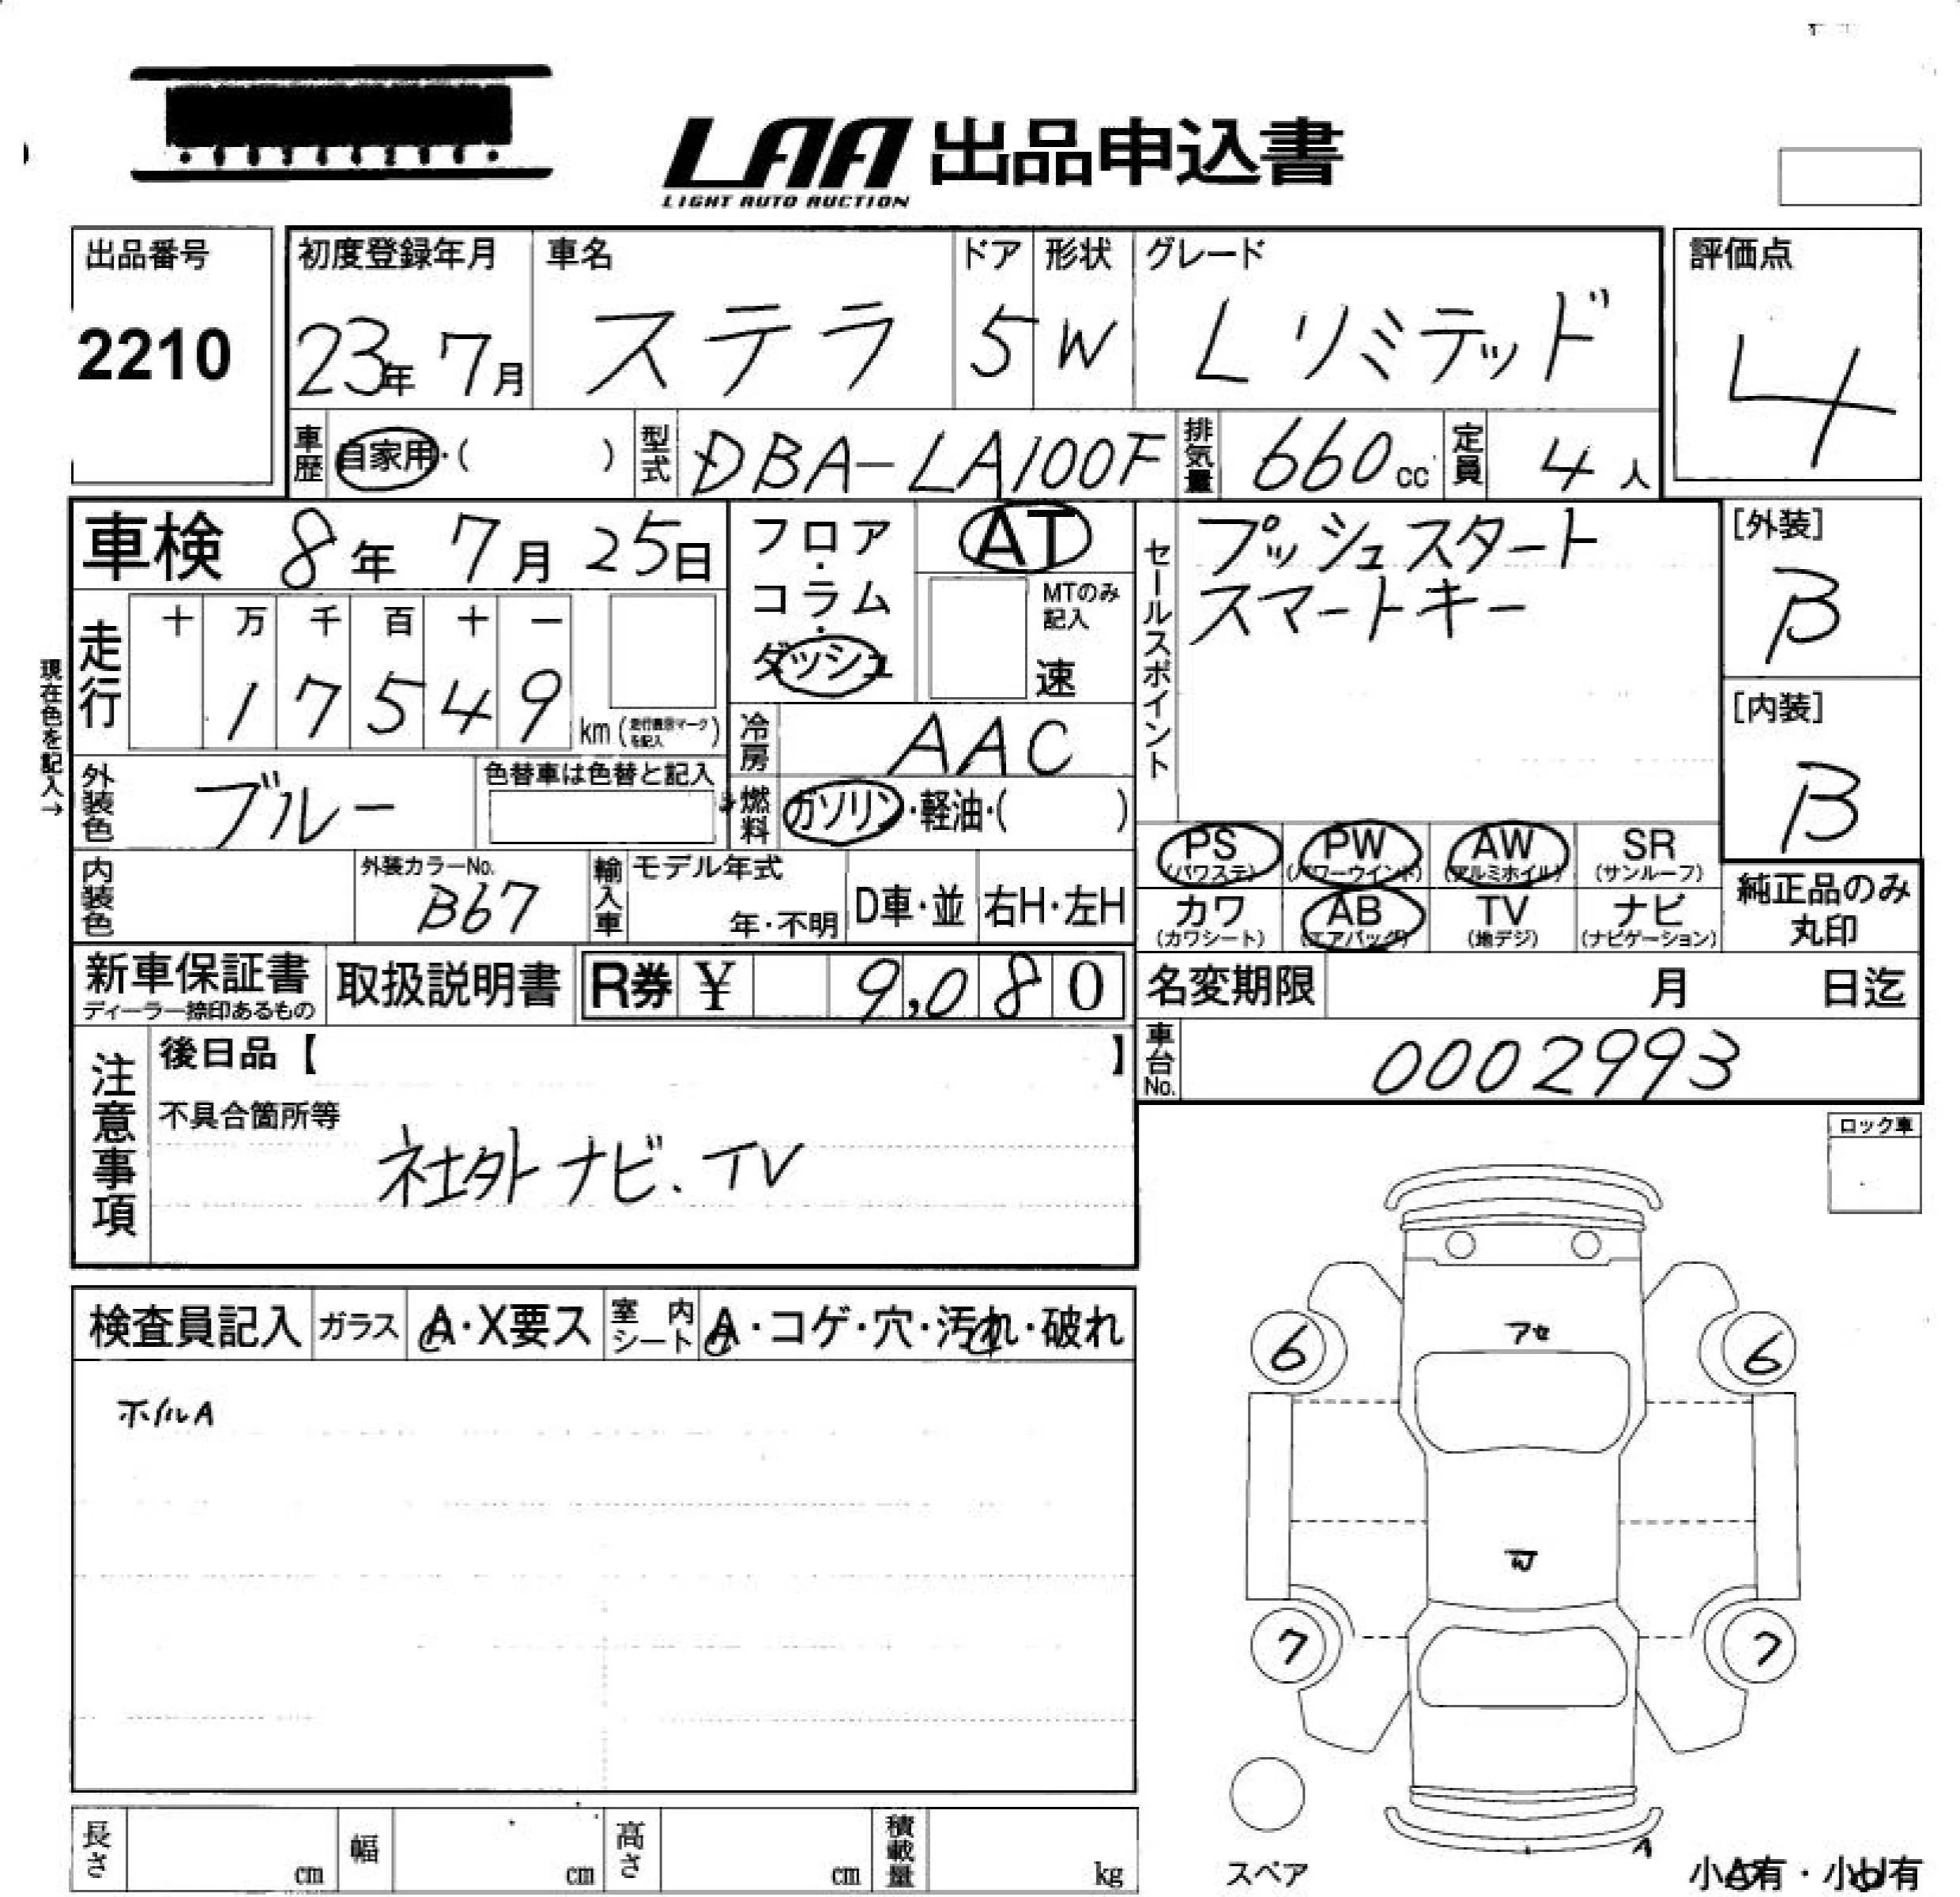 LAA 出品申込書
LIGHT AUTO AUCTION
出品番号
2210
初度登録年月
23年 7月
車名
ステラ
ドア
5
形状
W
グレード
Lリミテッド
評価点
4
車歴
自家用・( )
型式
DBA-LA100F
排気量
660cc
定員
4人
車検 8年 7月 25日
フロア・コラム・ダッシュ
AT
MTのみ記入
速
セールスポイント
プッシュスタート
スマートキー
[外装]
B
[内装]
B
現在色を記入→
走行
十 万 千 百 十 一
1 7 5 4 9
km (走行表示マークを記入)
冷房
AAC
外装色
ブルー
色替車は色替と記入
燃料
ガソリン・軽油・( )
PS (パワステ)
PW (パワーウインド)
AW (アルミホイル)
SR (サンルーフ)
カワ (カワシート)
AB (エアバッグ)
TV (地デジ)
ナビ (ナビゲーション)
純正品のみ
丸印
内装色
外装カラーNo.
B67
輸入車
モデル年式
年・不明
D車・並
右H・左H
新車保証書
ディーラー捺印あるもの
取扱説明書
R券 ¥ 9,080
名変期限 月 日迄
車台No.
0002993
注意事項
後日品【 】
不具合箇所等
社外ナビ.TV
ロック車
検査員記入
ガラス
A・X要ス
室内シート
A・コゲ・穴・汚れ・破れ
ホイルA
アセ
6
6
7
7
スペア
A
小A有・小U有
長さ cm
幅 cm
高さ cm
積載量 kg